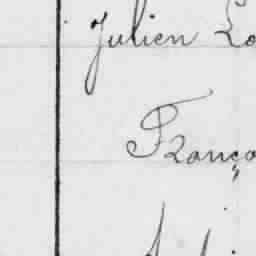 Julien Lo
Franço